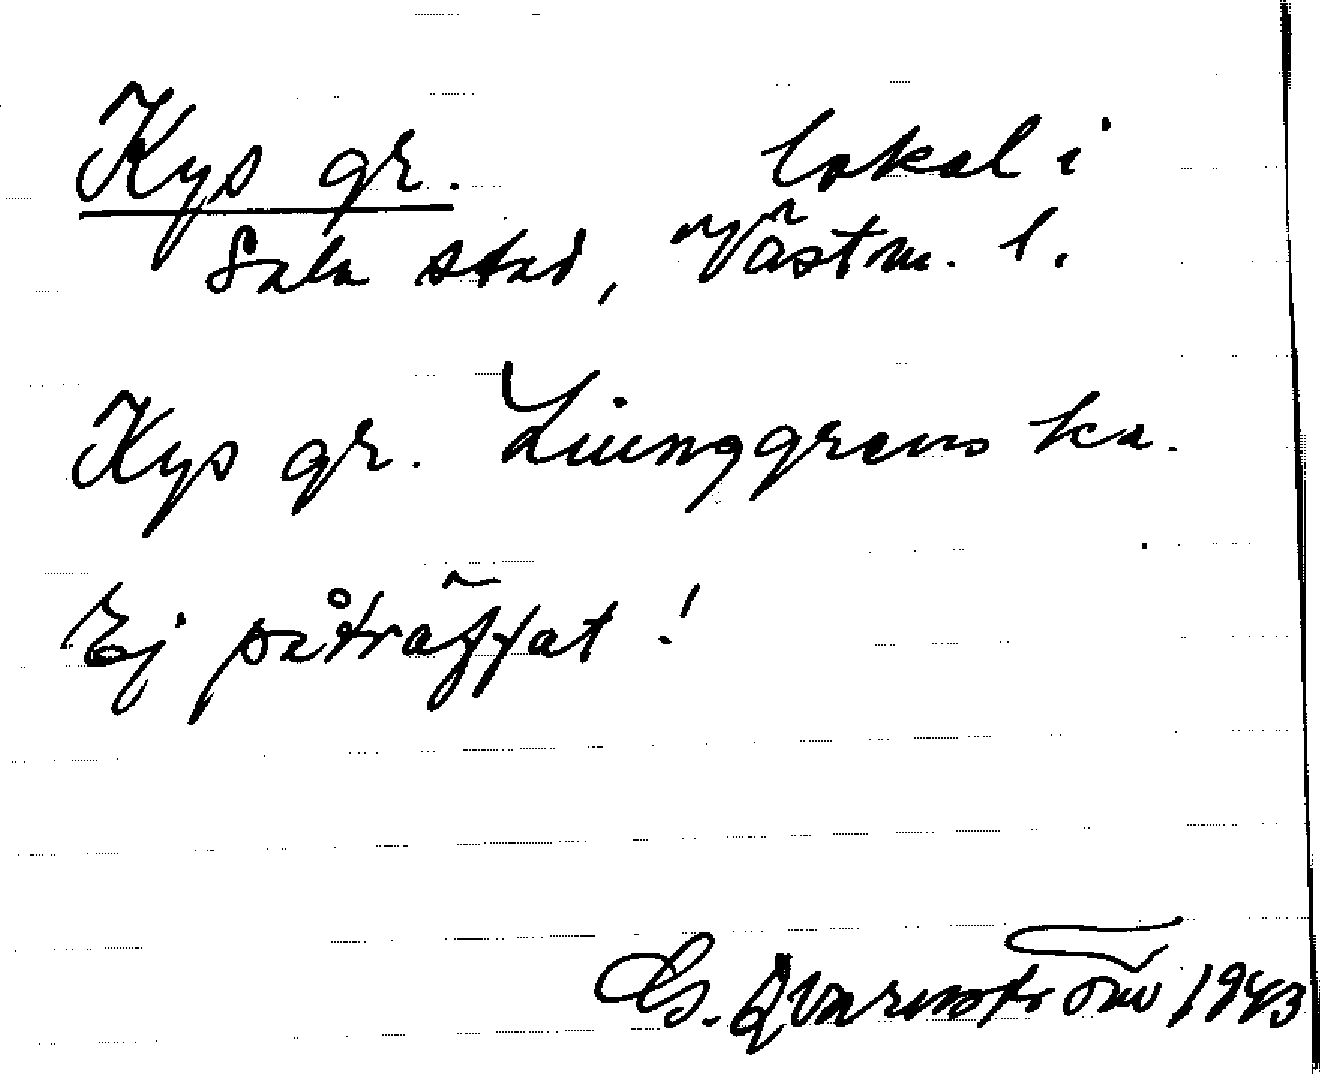 Kys gr. lokal i
Sala stad, Västm. l.
Kys gr. Liunggrens ka.
Ej påträffat!
G. Qvarnström 1943